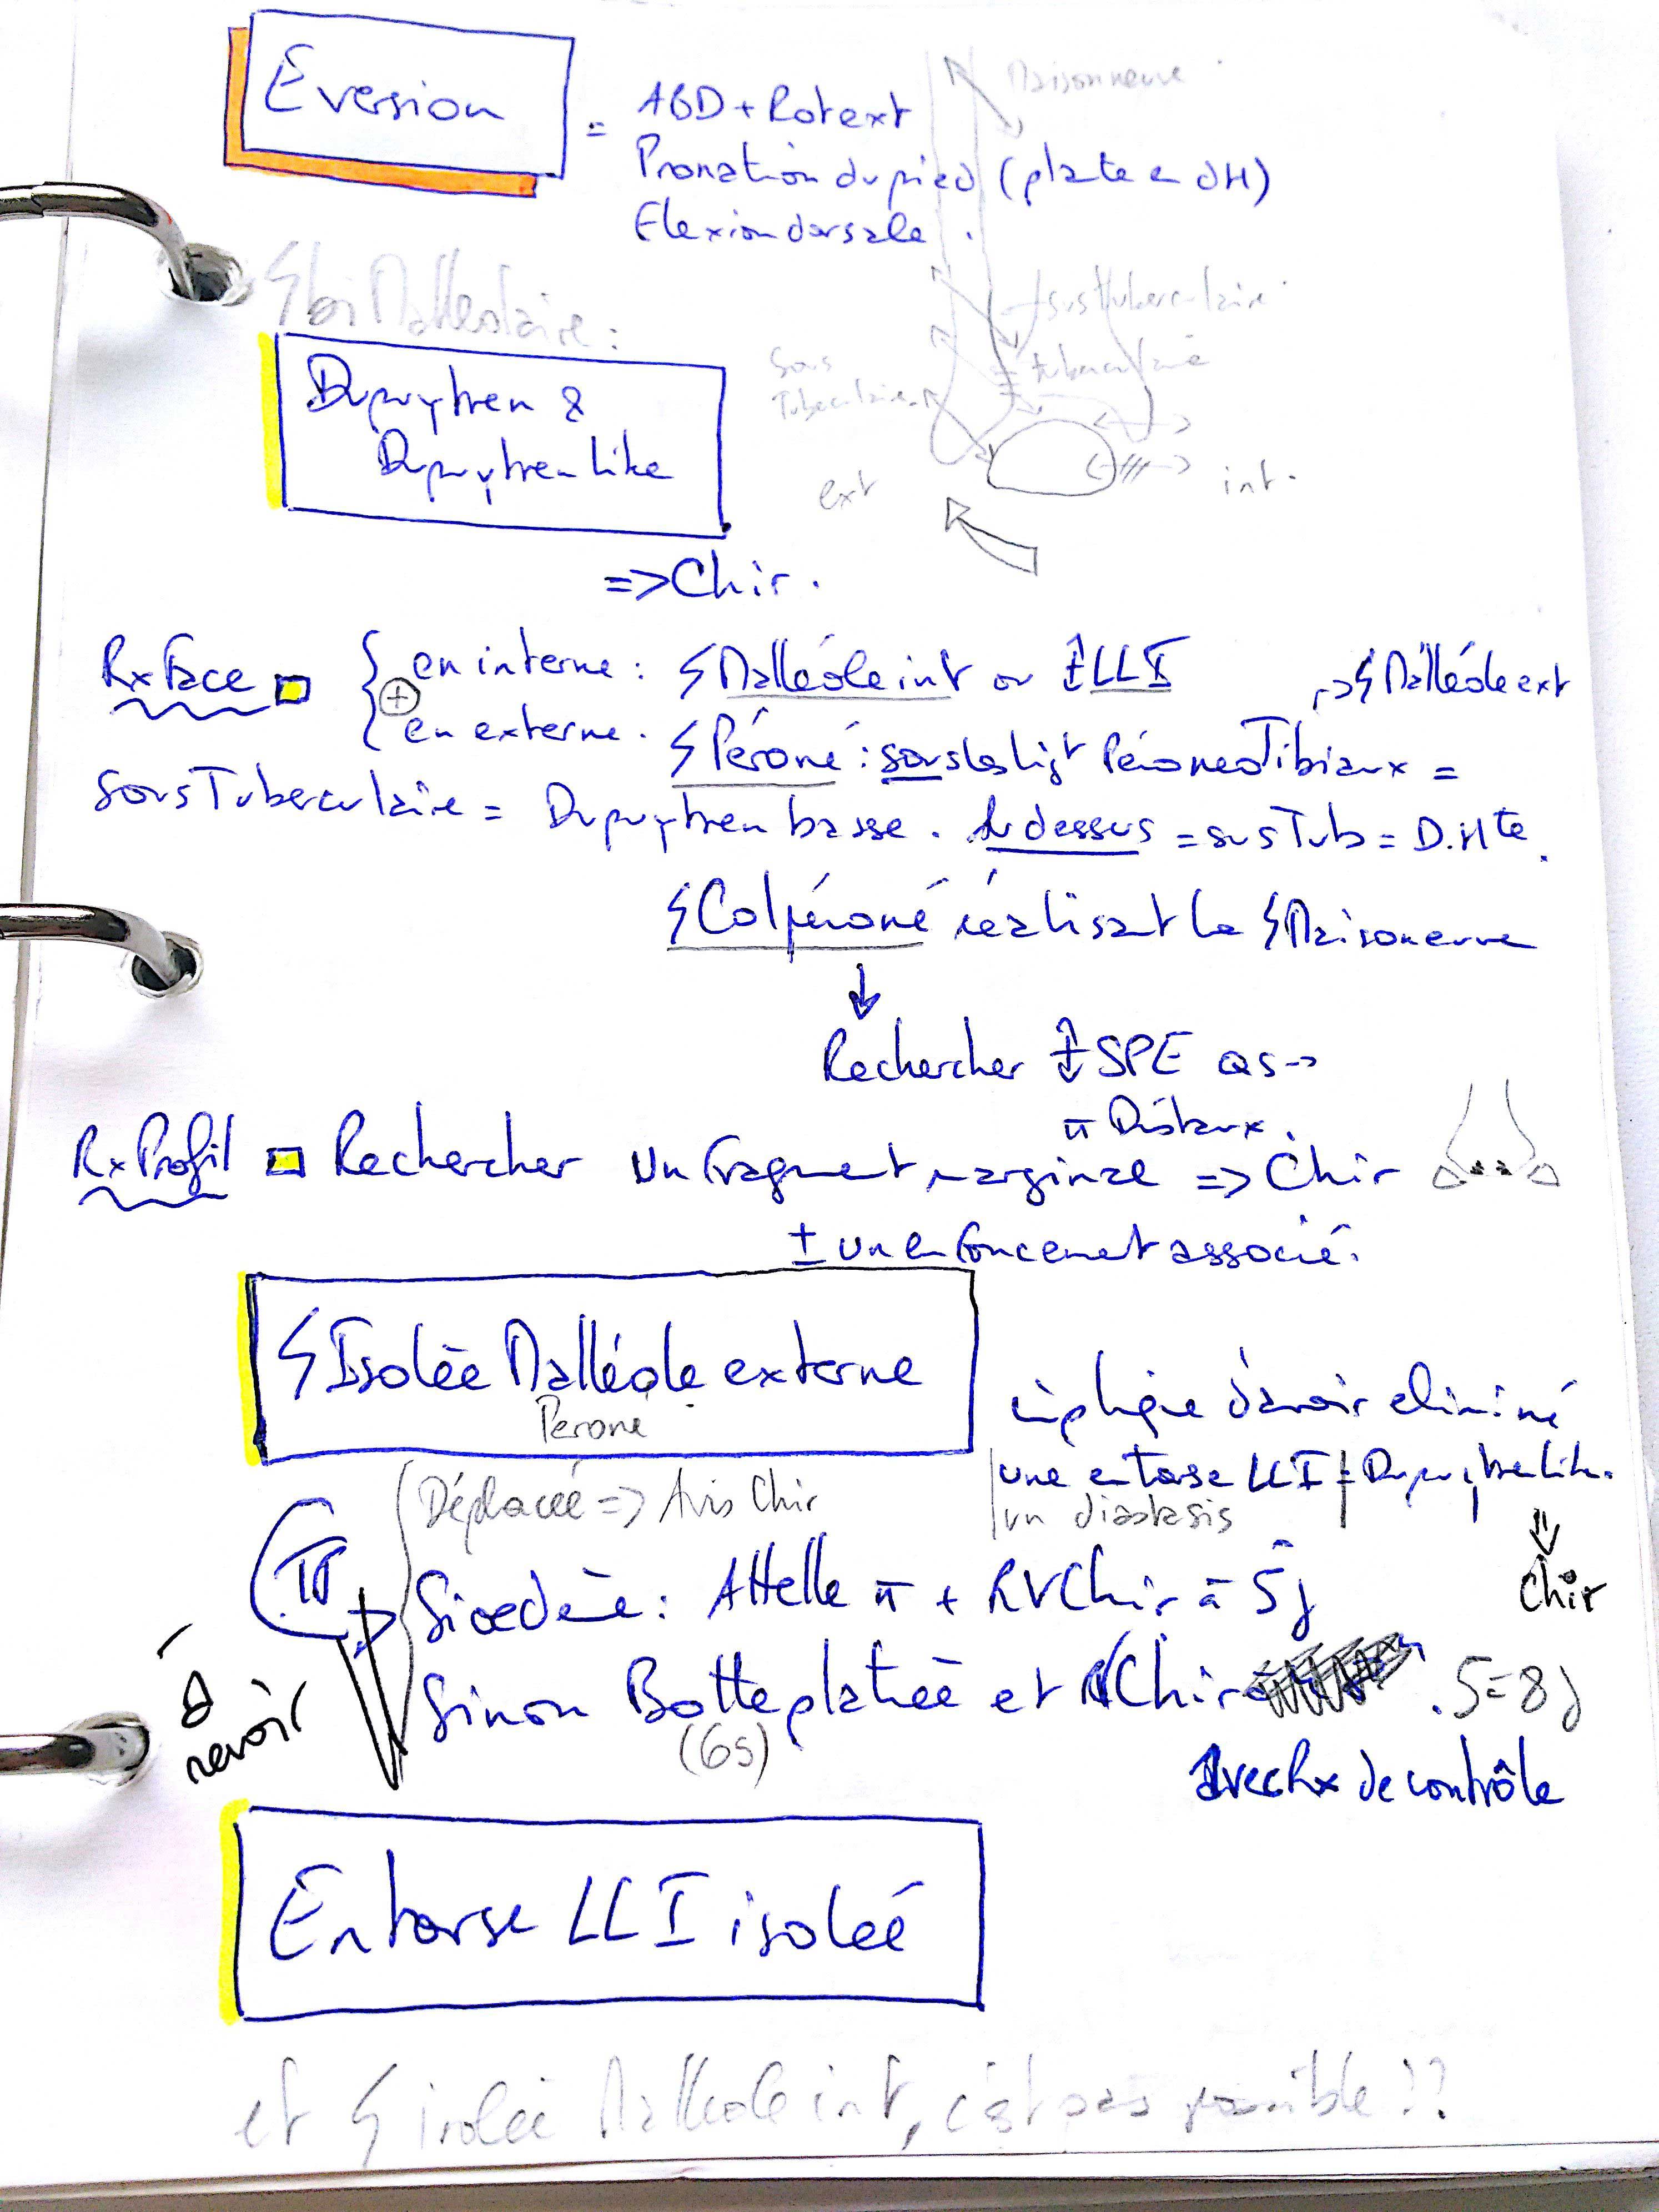 Eversion
= ABD + Rot ext
Pronation du pied (plante en dH)
Flexion dorsale.
Maisonneuve
bi Malléolaire :
sus tuberculaire
tuberculaire
Sous
Tuberculaire
ext
int.
Dupuytren &
Dupuytren like
=> Chir.
Rx Face
+
en interne : Malléole int ou LLI
-> Malléole ext
en externe. Péroné : sous les ligt Péronéo Tibiaux =
sous Tuberculaire = Dupuytren basse. Au dessus = sus Tub = D. Hte.
Col péroné réalisant la Maisoneuve
Rechercher SPE
Distaux.
Rx Profil Rechercher un fragment marginal => Chir
± un enfoncement associé.
Isolée Malléole externe
Péroné
implique d'avoir eliminé
une entorse LLI Dupuytren like.
un diastasis
Chir
Déplacée => Avis Chir
TT
Si oedème : Attelle π + RV Chir à 5j
Sinon Botte platrée et RV Chir . 5=8j
(6s)
Avec Rx de contrôle
à
revoir
Entorse LLI isolée
et isolée Malléole int, c'est pas possible !?